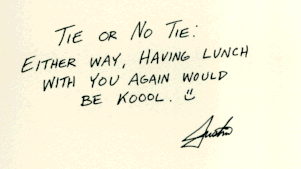 TIE OR NO TIE:
EITHER WAY, HAVING LUNCH
WITH YOU AGAIN WOULD
BE KOOOL. Ü
Justin